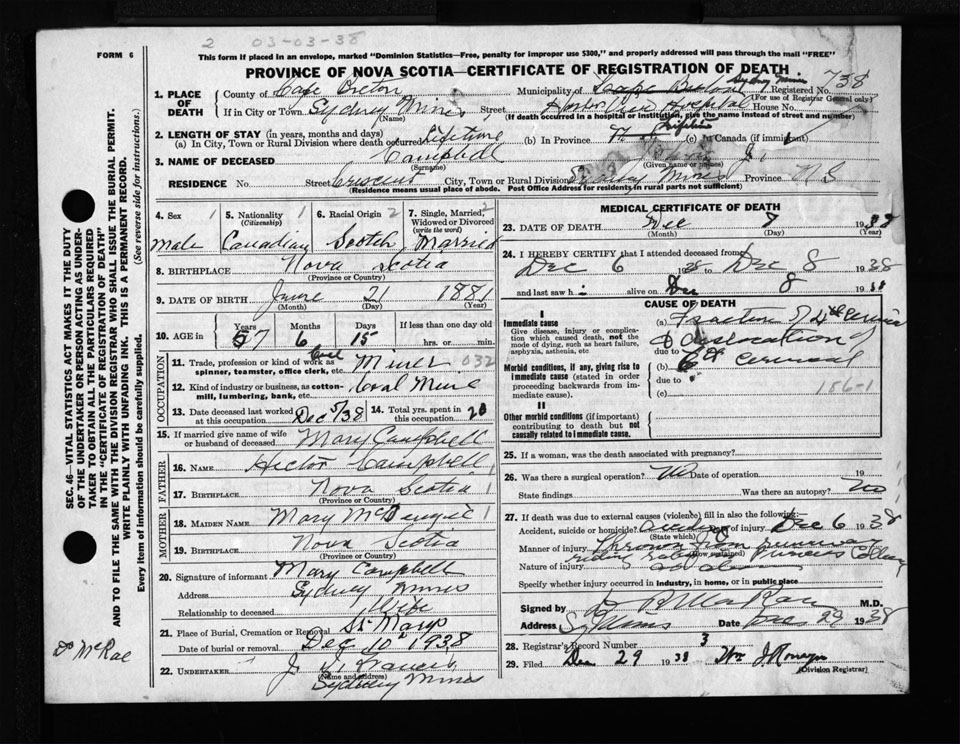 2 03-03-38
FORM 6
This form if placed in an envelope, marked "Dominion Statistics—Free, penalty for improper use $300," and properly addressed will pass through the mail "FREE"
PROVINCE OF NOVA SCOTIA—CERTIFICATE OF REGISTRATION OF DEATH
1. PLACE OF DEATH
County of Cape Breton Municipality of Cape Breton Sydney Mines Registered No. 738
(For use of Registrar General only)
If in City or Town Sydney Mines Street Harbor View Hospital House No.
(Name) (If death occurred in a hospital or institution, give the name instead of street and number)
2. LENGTH OF STAY (in years, months and days)
(a) In City, Town or Rural Division where death occurred Lifetime (b) In Province (c) In Canada (if immigrant)
3. NAME OF DECEASED Campbell J.
(Surname) (Given name or names)
RESIDENCE No. Street Crescent City, Town or Rural Division Sydney Mines Province N S
(Residence means usual place of abode. Post Office Address for residents in rural parts not sufficient)
SEC. 46—VITAL STATISTICS ACT MAKES IT THE DUTY
OF THE UNDERTAKER OR PERSON ACTING AS UNDER-
TAKER TO OBTAIN ALL THE PARTICULARS REQUIRED
IN THE "CERTIFICATE OF REGISTRATION OF DEATH"
AND TO FILE THE SAME WITH THE DIVISION REGISTRAR WHO SHALL ISSUE THE BURIAL PERMIT.
WRITE PLAINLY WITH UNFADING INK. THIS IS A PERMANENT RECORD.
Every item of information should be carefully supplied. (See reverse side for instructions.)
Dr McRae
4. Sex 1 5. Nationality 1 6. Racial Origin 2 7. Single, Married, Widowed or Divorced (write the word) 2
Male Canadian Scotch Married
8. BIRTHPLACE Nova Scotia
(Province or Country)
9. DATE OF BIRTH June 21 1881
(Month) (Day) (Year)
10. AGE in Years 57 Months 6 Days 15 If less than one day old
hrs. or min.
OCCUPATION
11. Trade, profession or kind of work as spinner, teamster, office clerk, etc. Coal Miner 032
12. Kind of industry or business, as cotton-mill, lumbering, bank, etc. Coal Mine
13. Date deceased last worked at this occupation Dec 5/38 14. Total yrs. spent in this occupation 20
15. If married give name of wife or husband of deceased Mary Campbell
FATHER
16. NAME Hector Campbell
17. BIRTHPLACE Nova Scotia 1
(Province or Country)
MOTHER
18. MAIDEN NAME Mary 1
19. BIRTHPLACE Nova Scotia
(Province or Country)
20. Signature of informant Mary Campbell
Address Sydney Mines
Relationship to deceased Wife
21. Place of Burial, Cremation or Removal St Marys
Date of burial or removal Dec 10 1938
22. UNDERTAKER J.
(Name and address)
Sydney Mines
MEDICAL CERTIFICATE OF DEATH
23. DATE OF DEATH Dec 8 1938
(Month) (Day) (Year)
24. I HEREBY CERTIFY that I attended deceased from
Dec 6 1938 to Dec 8 1938
and last saw h i alive on Dec 8 1938
CAUSE OF DEATH
I
Immediate cause
Give disease, injury or complication which caused death, not the mode of dying, such as heart failure, asphyxia, asthenia, etc
(a) Fracture of 4th
& dislocation of
due to
Morbid conditions, if any, giving rise to immediate cause (stated in order proceeding backwards from immediate cause).
(b) 6th Cervical
due to
(c) 186-1
II
Other morbid conditions (if important) contributing to death but not causally related to immediate cause.
25. If a woman, was the death associated with pregnancy?
26. Was there a surgical operation? No Date of operation 19
State findings Was there an autopsy? No
27. If death was due to external causes (violence) fill in also the following:
Accident, suicide or homicide? Accident Date of injury Dec 6 1938
(State which)
Manner of injury Thrown from
(How sustained)
Nature of injury
Specify whether injury occurred in industry, in home, or in public place
Signed by M.D.
Address Date Dec 29 1938
28. Registrar's Record Number 3
29. Filed Dec 29 1938 Wm J.
(Division Registrar)